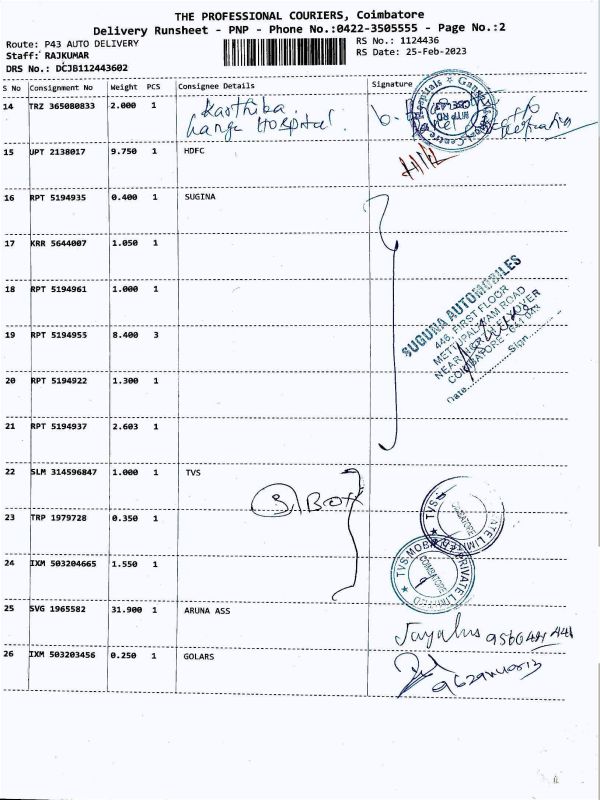 THE PROFESSIONAL COURIERS, Coimbatore
Delivery Runsheet - PNP - Phone No.:0422-3505555 - Page No.:2
Route: P43 AUTO DELIVERY
RS No.: 1124436
Staff: RAJKUMAR
RS Date: 25-Feb-2023
DRS No.: DCJB112443602
S No Consignment No Weight PCS Consignee Details Signature
14 TRZ 365080833 2.000 1 Karthika
Ganga Hospital.
15 UPT 2138017 9.750 1 HDFC
16 RPT 5194935 0.400 1 SUGINA
17 KRR 5644007 1.050 1
18 RPT 5194961 1.000 1
SUGUNA AUTOMOBILES
446, FIRST FLOOR
METTUPALAYAM ROAD
COIMBATORE - 641 043
Date Sign
19 RPT 5194955 8.400 3
20 RPT 5194922 1.300 1
21 RPT 5194937 2.603 1
22 SLM 314596847 1.000 1 TVS
23 TRP 1979728 0.350 1
COIMBATORE
24 IXM 503204665 1.550 1
TVS MOBILITY PRIVATE LIMITED
COIMBATORE
25 SVG 1965582 31.900 1 ARUNA ASS
26 IXM 503203456 0.250 1 GOLARS